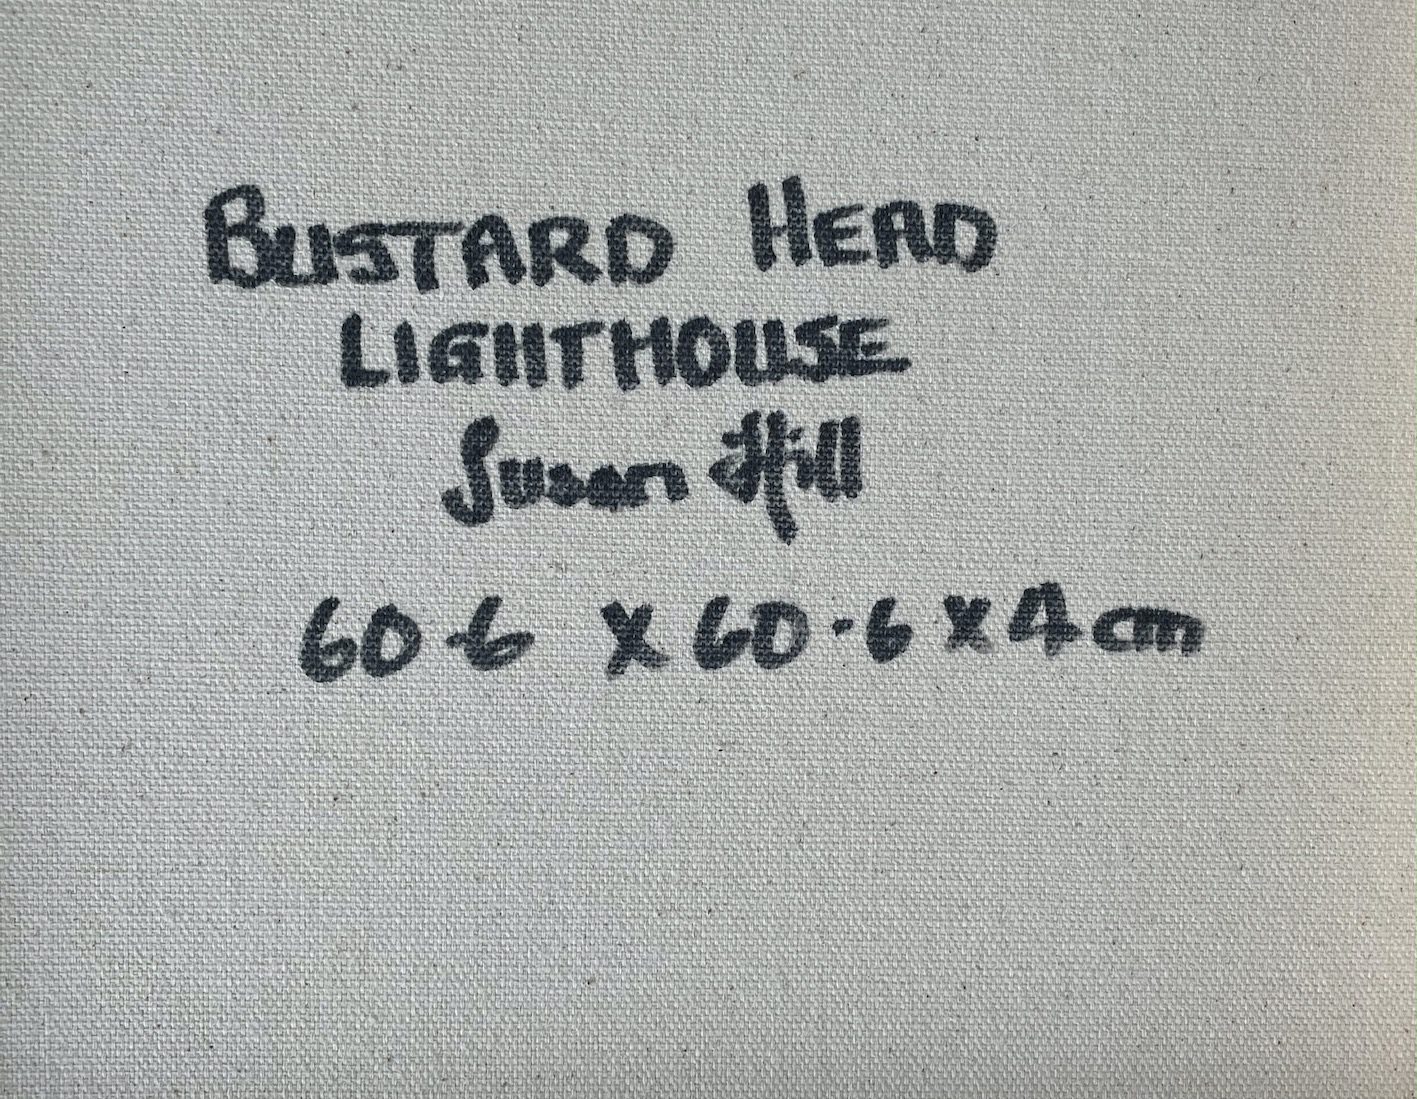 BUSTARD HEAD
LIGHTHOUSE
Susan Hill
60·6 x 60·6 x 4 cm